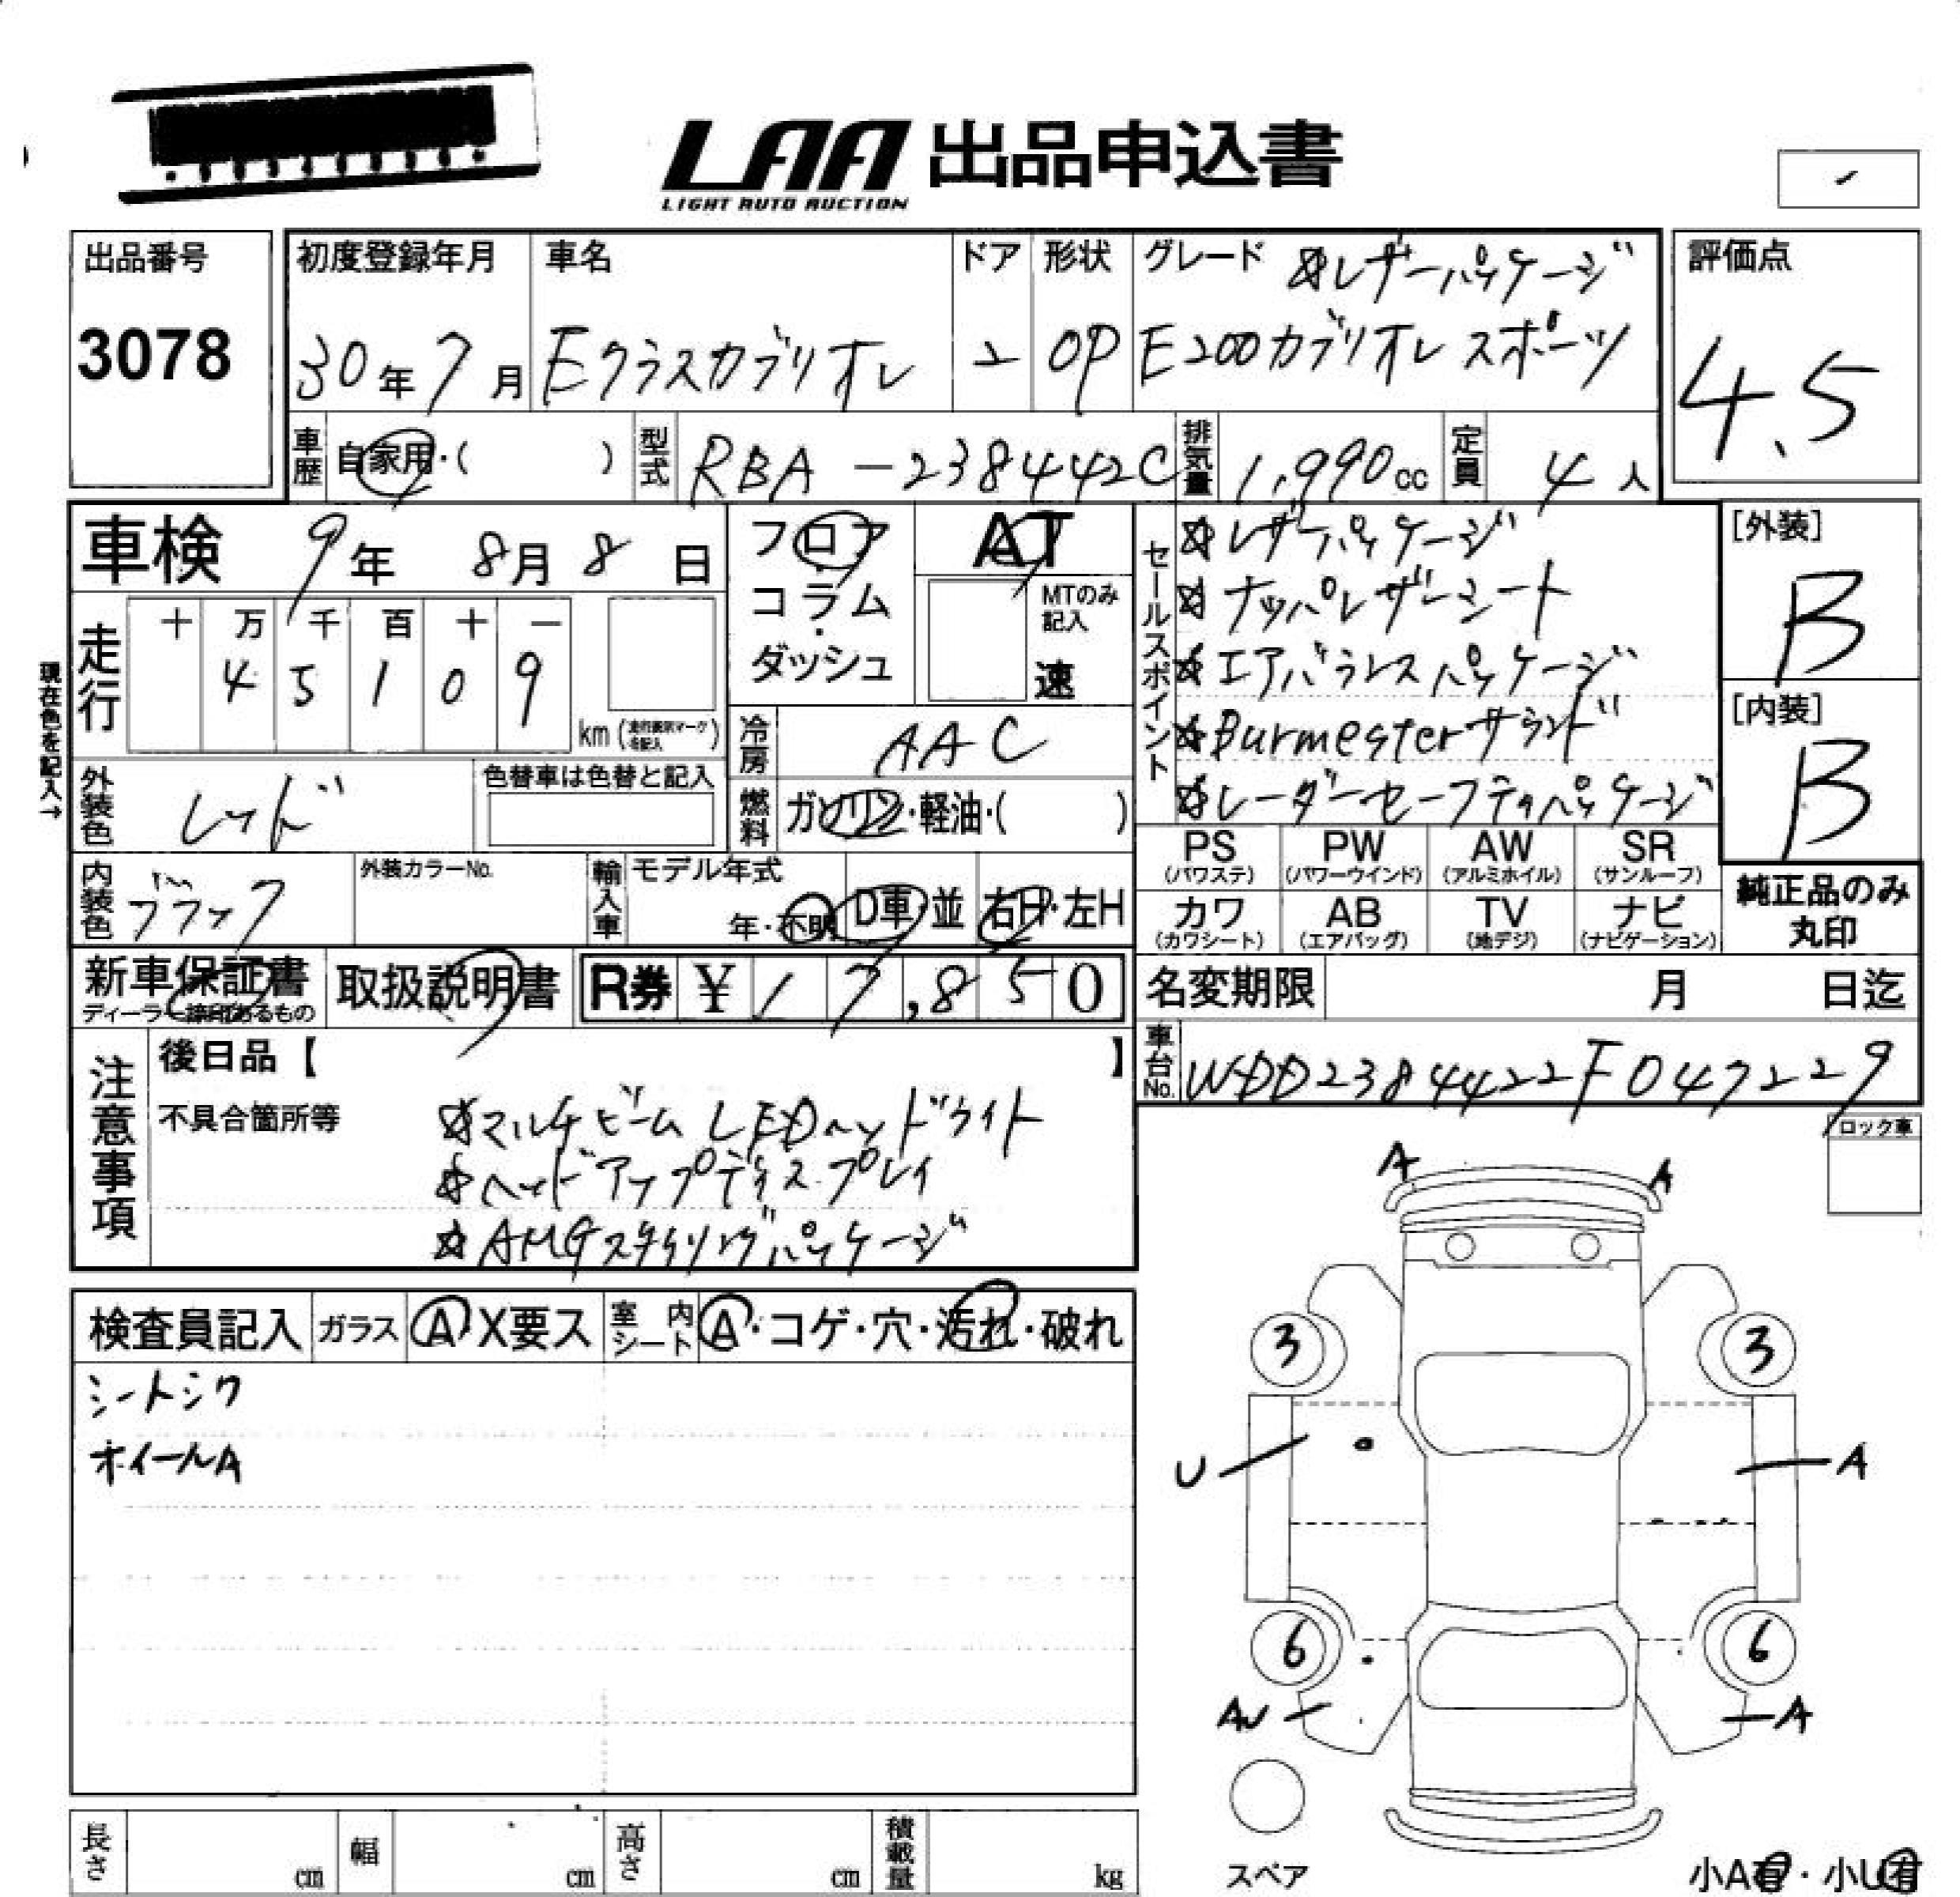 LAA 出品申込書
LIGHT AUTO AUCTION
出品番号
3078
初度登録年月
30年7月
車名
Eクラスカブリオレ
ドア
2
形状
OP
グレード ☆レザーパッケージ
E200カブリオレ スポーツ
評価点
4.5
車歴 自家用・( )
型式 RBA-238442C
排気量 1,990cc
定員 4人
車検 9年 8月 8日
フロア・コラム・ダッシュ
AT
MTのみ記入
速
セールスポイント
☆レザーパッケージ
☆ナッパレザーシート
☆エアバランスパッケージ
☆Burmesterサウンド
☆レーダーセーフティパッケージ
[外装]
B
[内装]
B
現在色を記入→
走行
十 万 千 百 十 一
4 5 1 0 9
km
冷房 AAC
外装色 レッド
色替車は色替と記入
燃料 ガソリン・軽油・( )
内装色 ブラック
外装カラーNo.
輸入車
モデル年式
年・不明
D車・並
右H・左H
PS (パワステ)
PW (パワーウインド)
AW (アルミホイル)
SR (サンルーフ)
カワ (カワシート)
AB (エアバッグ)
TV (地デジ)
ナビ (ナビゲーション)
純正品のみ
丸印
新車保証書
取扱説明書
R券 ¥17,850
名変期限 月 日迄
車台No. WDD2384422F047229
注意事項
後日品【 】
不具合箇所等
☆マルチビームLEDヘッドライト
☆ヘッドアップディスプレイ
☆AMGスタイリングパッケージ
ロック車
検査員記入
ガラス A・X要ス
室内シート A・コゲ・穴・汚れ・破れ
シートシワ
ホイールA
A A
3 3
U A
6 6
AU A
スペア
長さ cm
幅 cm
高さ cm
積載量 kg
小A有・小U有